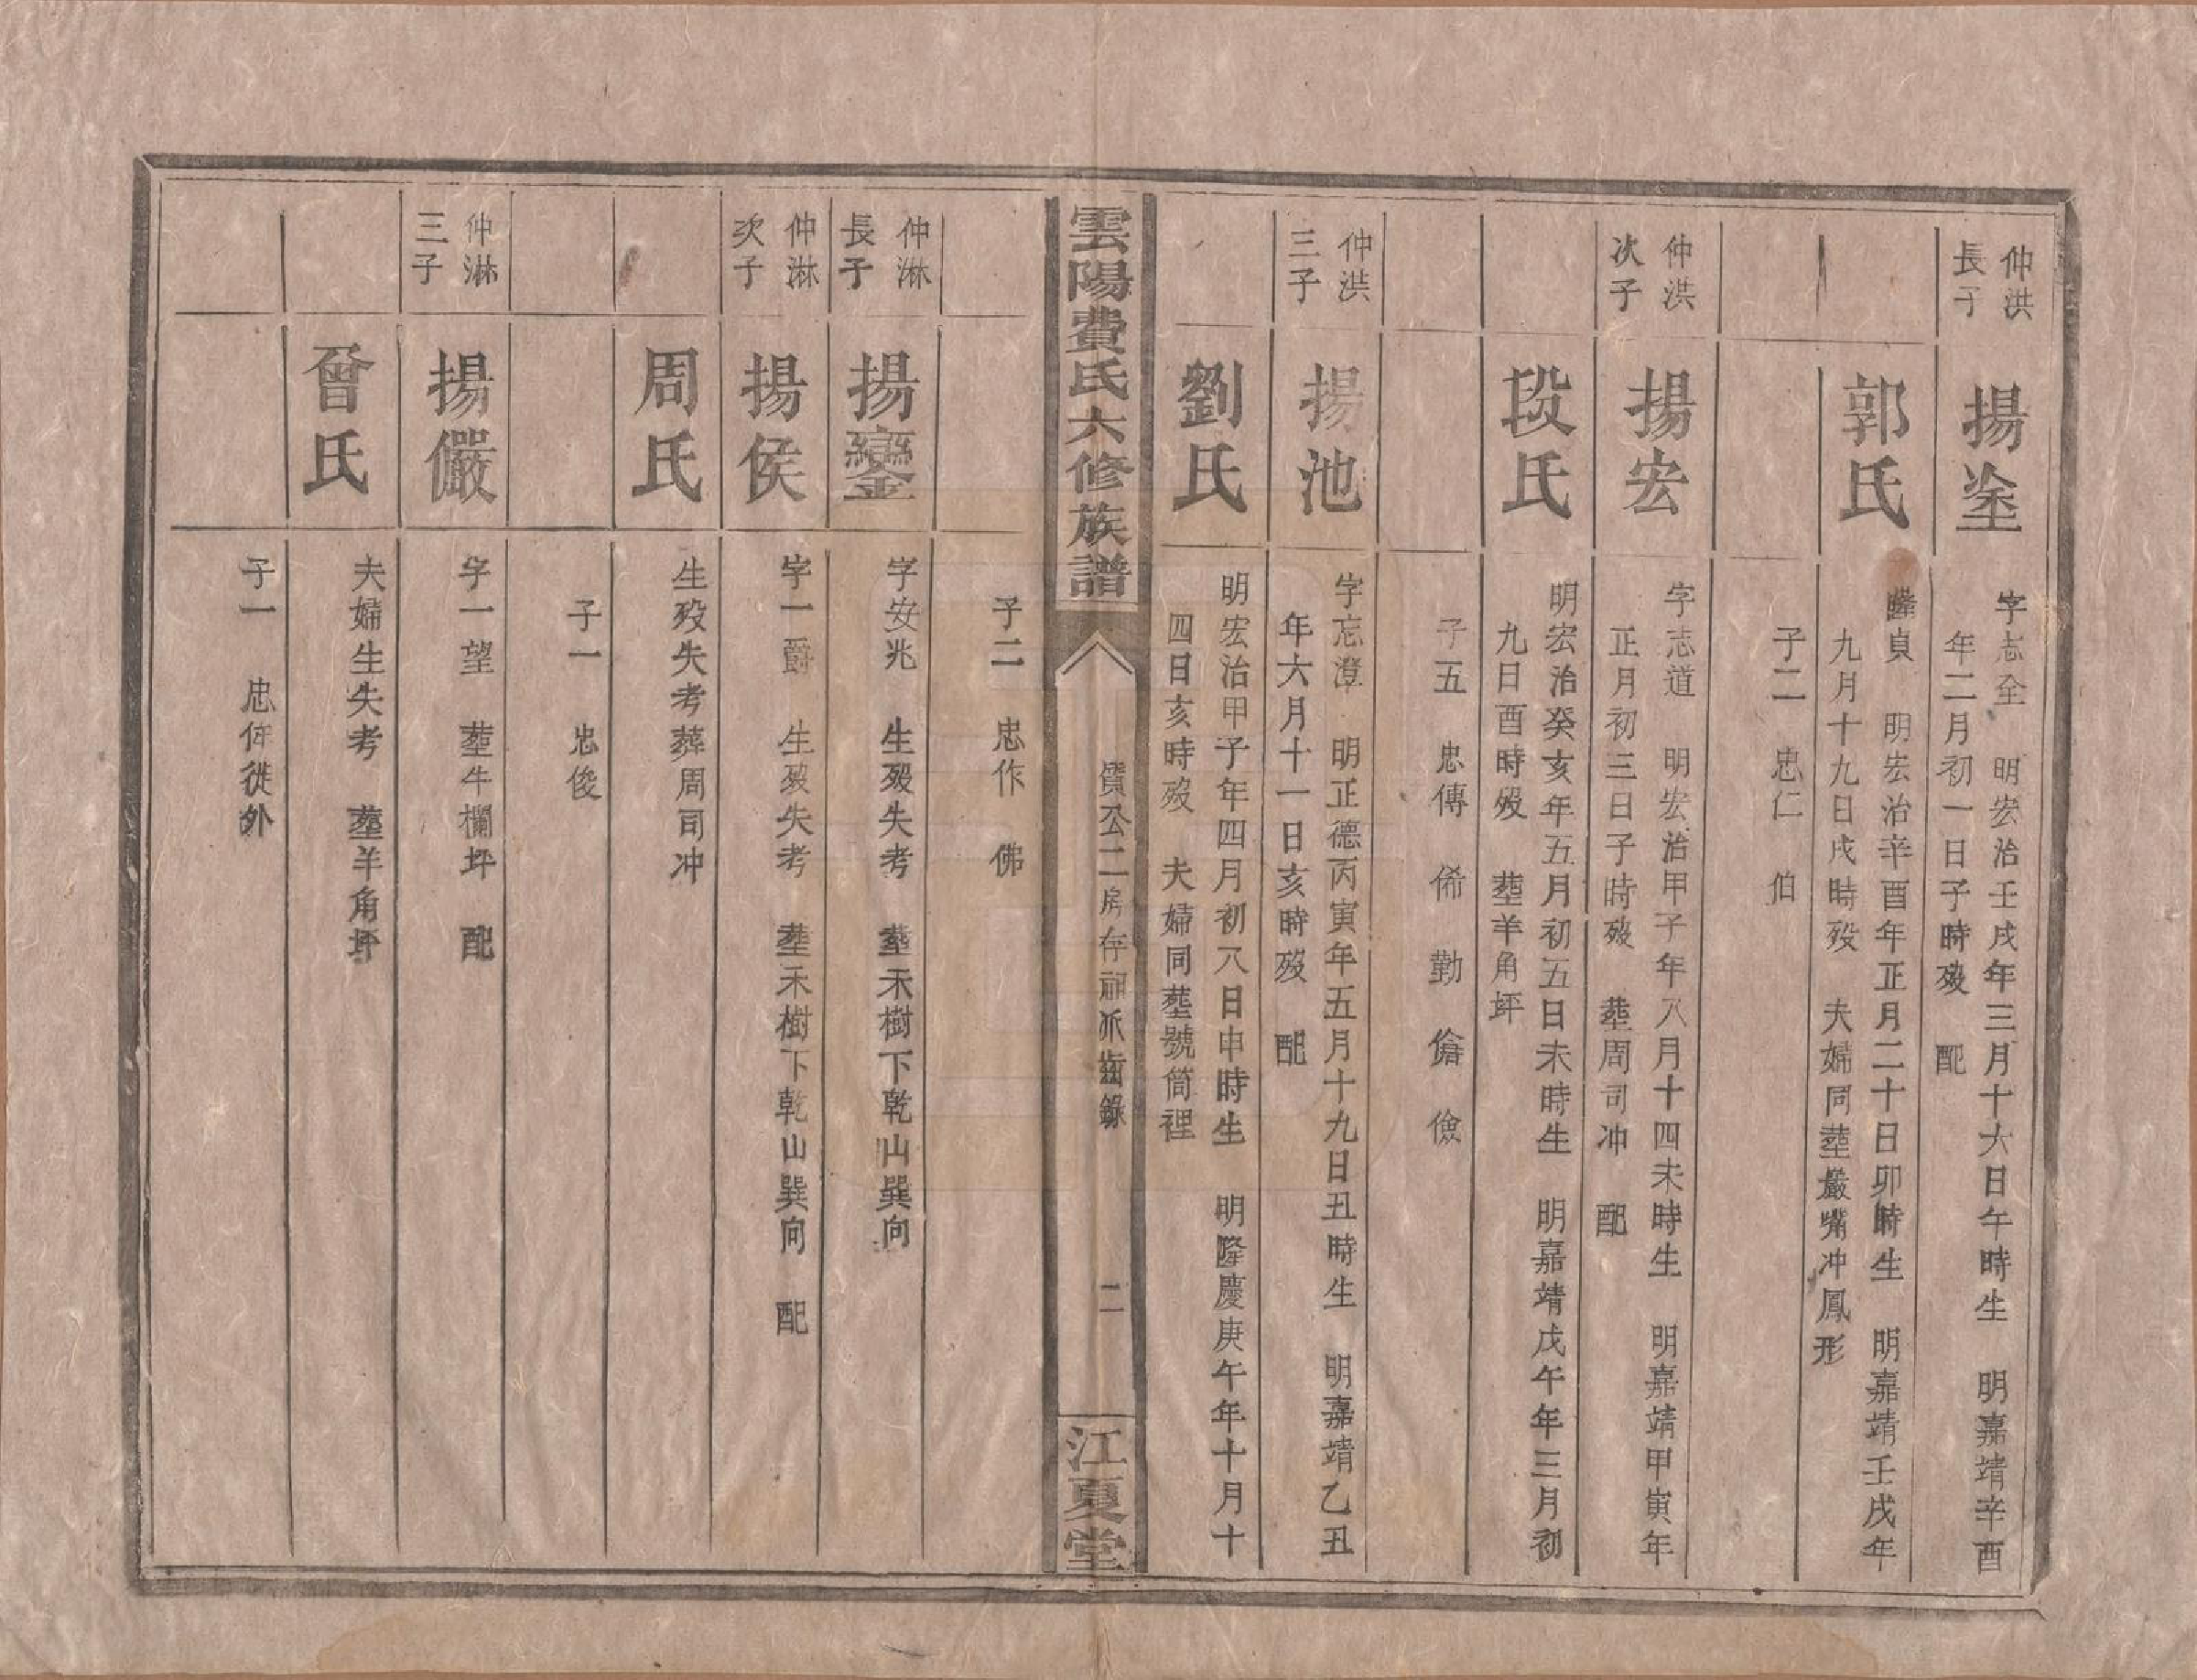 仲洪
長子
揚埊
字志全 明宏治壬戌年三月十六日午時生 明嘉靖辛酉
年二月初一日子時歿 配
郭氏
隆貞 明宏治辛酉年正月二十日卯時生 明嘉靖壬戌年
九月十九日戌時歿 夫婦同塟巖嘴冲鳳形
子二 忠仁 伯
仲洪
次子
揚宏
字志道 明宏治甲子年八月十四未時生 明嘉靖甲寅年
正月初三日子時歿 塟周司冲 配
段氏
明宏治癸亥年五月初五日未時生 明嘉靖戊午年三月初
九日酉時歿 塟羊角坪
子五 忠傳 俙 勤 儋 儉
仲洪
三子
揚池
字志澄 明正德丙寅年五月十九日丑時生 明嘉靖乙丑
年六月十一日亥時歿 配
劉氏
明宏治甲子年四月初八日申時生 明隆慶庚午年十月十
四日亥時歿 夫婦同塟號筒裡
雲陽費氏六修族譜
貲公二房存祖派齒錄
二
江夏堂
子二 忠作 佛
仲淋
長子
揚鑾
字安兆 生歿失考 塟禾樹下乾山巽向
仲淋
次子
揚侯
字一爵 生歿失考 塟禾樹下乾山巽向 配
周氏
生歿失考葬周司冲
子一 忠俊
仲淋
三子
揚儼
字一望 塟牛欄坪 配
曾氏
夫婦生失考 塟羊角坪
子一 忠仵徙外